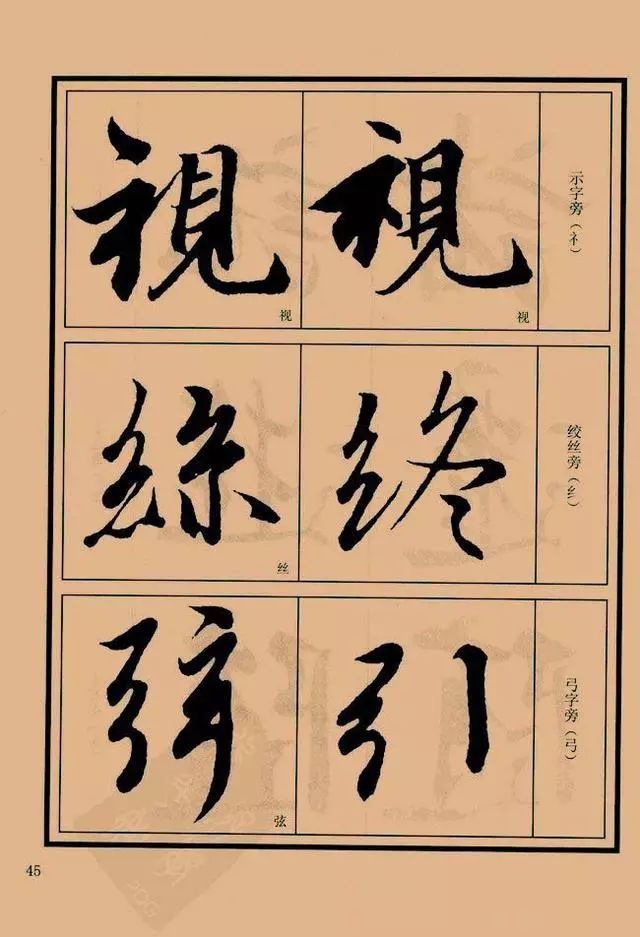 示字旁（礻）
視
视
視
视
绞丝旁（纟）
終
絲
丝
弓字旁（弓）
引
弦
弦
45